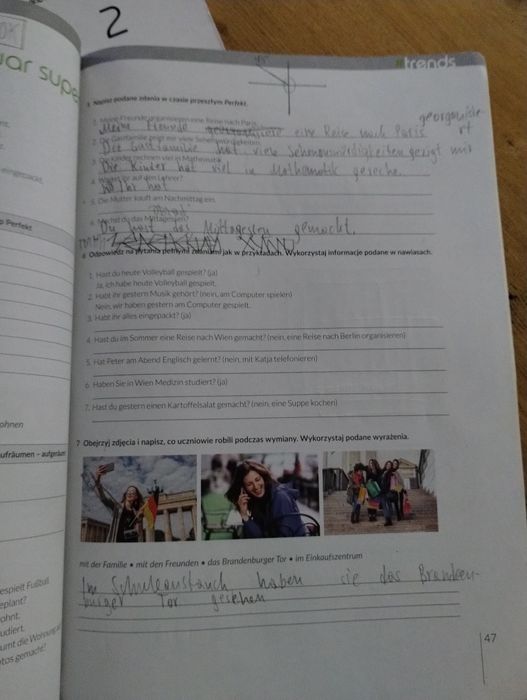 2
#trends
5 Napisz podane zdania w czasie przeszłym Perfekt.
1. Meine Freunde organisieren eine Reise nach Paris.
georganisie-
Meine Freunde eine Reise nach Paris rt
2. Die Gastfamilie zeigt mir viele Sehenswürdigkeiten.
Die Gastfamilie hat viele Sehenswürdigkeiten gezigt mir
3. Die Kinder rechnen viel in Mathematik.
Die Kinder hat viel in Mathematik
4. Wartet ihr auf den Lehrer?
Ihr hat
5. Die Mutter kauft am Nachmittag ein.
6. Machst du das Mittagessen?
Du hast das Mittagesten gemacht.
6 Odpowiedz na pytania pełnymi zdaniami jak w przykładach. Wykorzystaj informacje podane w nawiasach.
1. Hast du heute Volleyball gespielt? (ja)
Ja, ich habe heute Volleyball gespielt.
2. Habt ihr gestern Musik gehört? (nein, am Computer spielen)
Nein, wir haben gestern am Computer gespielt.
3. Habt ihr alles eingepackt? (ja)
4. Hast du im Sommer eine Reise nach Wien gemacht? (nein, eine Reise nach Berlin organisieren)
5. Hat Peter am Abend Englisch gelernt? (nein, mit Katja telefonieren)
6. Haben Sie in Wien Medizin studiert? (ja)
7. Hast du gestern einen Kartoffelsalat gemacht? (nein, eine Suppe kochen)
7 Obejrzyj zdjęcia i napisz, co uczniowie robili podczas wymiany. Wykorzystaj podane wyrażenia.
mit der Familie • mit den Freunden • das Brandenburger Tor • im Einkaufszentrum
Im Schuleaustauch haben sie das Branden-
burger Tor gesehen
47
eingepackt,
o Perfekt
ohnen
ufräumen – aufgeräumt
espielt Fußball
eplant?
ohnt.
udiert.
umt die Wohnung
tos gemacht?